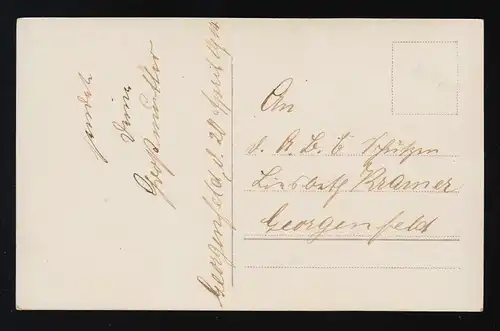 sendet
Deine
Großmutter
Georgenfeld, d. 20 April 19
An
d. A. B. C Schützen
Liesbeth Kramer
Georgenfeld